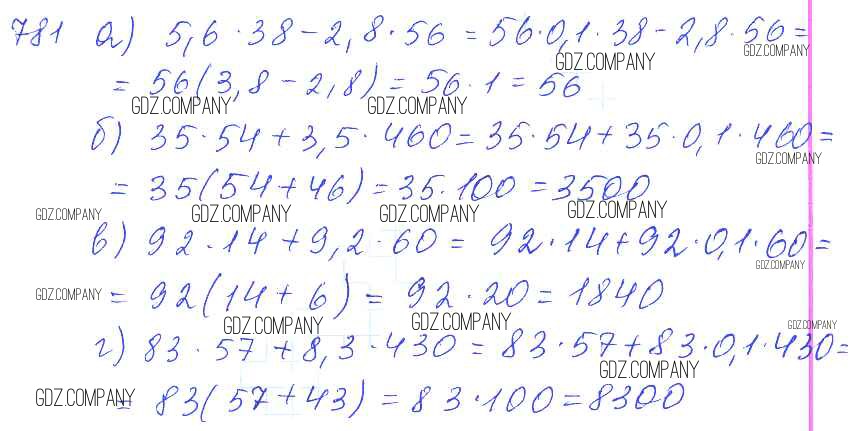 781 а) 5,6 · 38 - 2,8 · 56 = 56 · 0,1 · 38 - 2,8 · 56 =
GDZ.COMPANY
GDZ.COMPANY
= 56(3,8 - 2,8) = 56 · 1 = 56
GDZ.COMPANY GDZ.COMPANY
б) 35 · 54 + 3,5 · 460 = 35 · 54 + 35 · 0,1 · 460 =
GDZ.COMPANY
= 35(54 + 46) = 35 · 100 = 3500
GDZ.COMPANY GDZ.COMPANY GDZ.COMPANY GDZ.COMPANY
в) 92 · 14 + 9,2 · 60 = 92 · 14 + 92 · 0,1 · 60 =
GDZ.COMPANY
GDZ.COMPANY = 92(14 + 6) = 92 · 20 = 1840
GDZ.COMPANY GDZ.COMPANY GDZ.COMPANY
г) 83 · 57 + 8,3 · 430 = 83 · 57 + 83 · 0,1 · 430 =
GDZ.COMPANY
GDZ.COMPANY = 83(57 + 43) = 83 · 100 = 8300